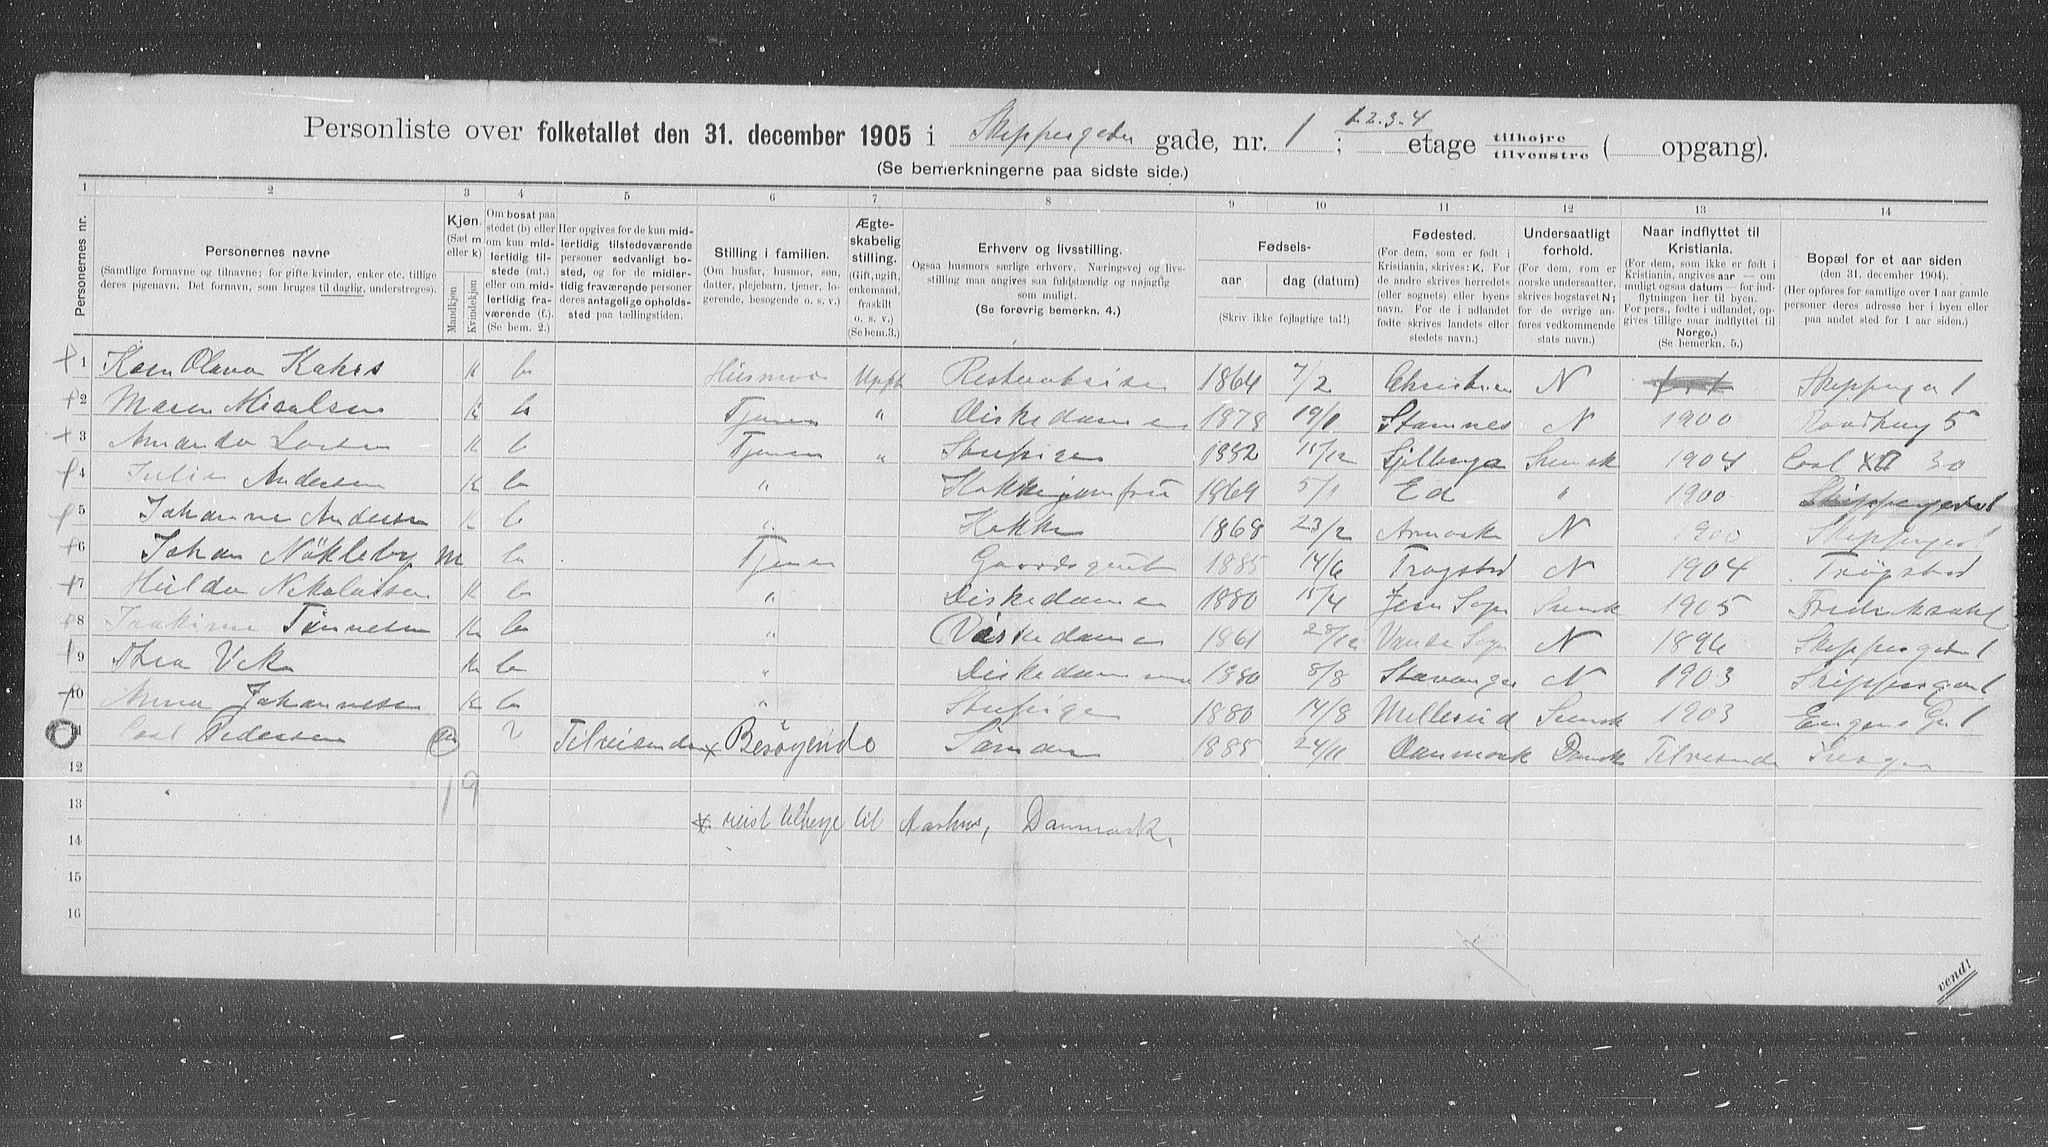 Personliste over folketallet den 31. december 1905 i Skippergaden gade, nr. 1; 1.2.3.4 etage tilhøjre tilvenstre ( opgang).
(Se bemerkningerne paa sidste side.)
1 2 3 4 5 6 7 8 9 10 11 12 13 14
Personernes nr.
Personernes navne
(Samtlige fornavne og tilnavne; for gifte kvinder, enker etc. tillige
deres pigenavn. Det fornavn, som bruges til daglig, understreges).
Kjøn.
(Sæt m
eller k)
Mandkjøn
Kvindekjøn
Om bosat paa
stedet (b) eller
om kun mid-
lertidig til-
stede (mt.)
eller om mid-
lertidig fra-
værende (f.).
(Se bem. 2.)
Her opgives for de kun mid-
lertidig tilstedeværende
personer sedvanlig bo-
sted, og for de midler-
tidig fraværende personer
deres antagelige opholds-
sted paa tællingstiden.
Stilling i familien.
(Om husfar, husmor, søn,
datter, plejebarn, tjener, lo-
gerende, besøgende o. s. v.)
Ægte-
skabelig
stilling.
(Gift, ugift,
enkemand,
fraskilt
o. s. v.)
(Se bem.3.)
Erhverv og livsstilling.
Ogsaa husmors særlige erhverv. Næringsvej og livs-
stilling maa angives saa fuldstændig og nøjagtig
som muligt.
(Se forøvrig bemerkn. 4.)
Fødsels-
aar
dag (datum)
(Skriv ikke fejlagtige tal!)
Fødested.
(For dem, som er født i
Kristiania, skrives: K. For
de andre skrives herredets
(eller sognets) eller byens
navn. For de i udlandet
fødte skrives landets eller
stedets navn.)
Undersaatligt
forhold.
(For dem, som er
norske undersaatter,
skrives bogstavet N;
for de øvrige an-
føres vedkommende
stats navn.)
Naar indflyttet til
Kristiania.
(For dem, som ikke er født i
Kristiania, angives aar — om
muligt ogsaa datum — for ind-
flytningen her til byen.
For pers., fødte i udlandet, op-
gives tillige naar indflyttet til
Norge.)
(Se bemerkn. 5.)
Bopæl for et aar siden
(den 31. december 1904).
(Her opføres for samtlige over 1 aar gamle
personer deres adresse her i byen eller
paa andet sted for 1 aar siden.)
1 Karen Olava Kahrs K b Husmor Restauratrise 1864 7/2 N Skipperga 1
2 Maren K b Tjener " Diskedamen 1878 19/1 Stamnes N 1900 5
3 Amanda Larsen K b Tjener " Stuepigen 1882 15/12 Svensk 1904 30
4 Julie Andersen K b " 1864 5/1 Ed " 1900 Skippergaden 1
5 Johanne Andersen K b " Kokke 1868 23/2 N 1900 Skipperga 1
6 Johan Nökleby m b Tjener Gaardsgut 1885 14/6 Trögstad N 1904 Trögstad
7 Hulda Nikolaisen K b " Diskedamen 1880 15/4 Svensk 1905 Fredrikshald
8 Joakime Tönnesen K b " Diskedamen 1861 28/12 N 1896 Skippergaden 1
9 Thea Vik K b " Diskedamen 1880 8/8 Stavanger N 1903 Skippergad 1
10 Anna Johannesen K b " Stuepigen 1880 14/8 Svensk 1903 1
11 Carl Pedersen m Tilreisende × Besögende Sömand 1885 24/11 Danmark Dansk Tilreisende
12
1 9
13
× reist tilbage til Aarhus, Danmark.
14
15
16
vend!